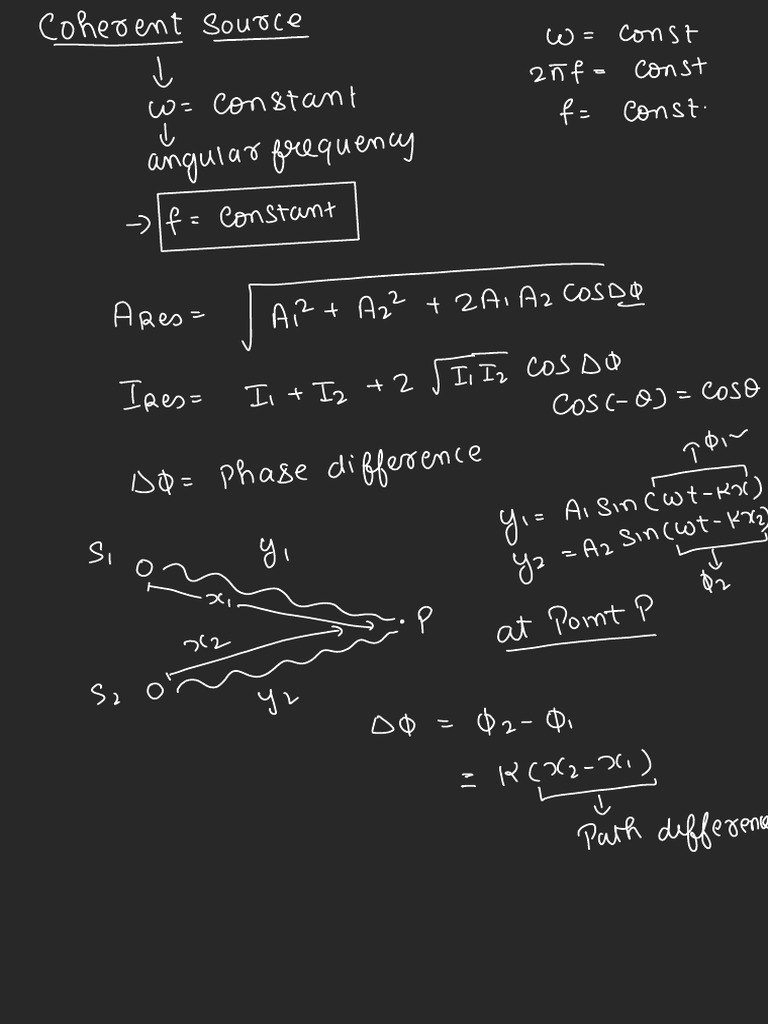 Coherent Source
↓
ω = constant
↓
angular frequency
→ f = constant
ω = const
2πf = const
f = const.
ARes = √(A₁² + A₂² + 2A₁A₂ cosΔϕ)
IRes = I₁ + I₂ + 2√(I₁I₂) cosΔϕ
cos(-θ) = cosθ
Δϕ = Phase difference
↑ϕ₁
y₁ = A₁ sin(ωt - Kx₁)
y₂ = A₂ sin(ωt - Kx₂)
↓
ϕ₂
at Point P
S₁
y₁
x₁
P
x₂
S₂
y₂
Δϕ = ϕ₂ - ϕ₁
= K(x₂ - x₁)
↓
Path difference